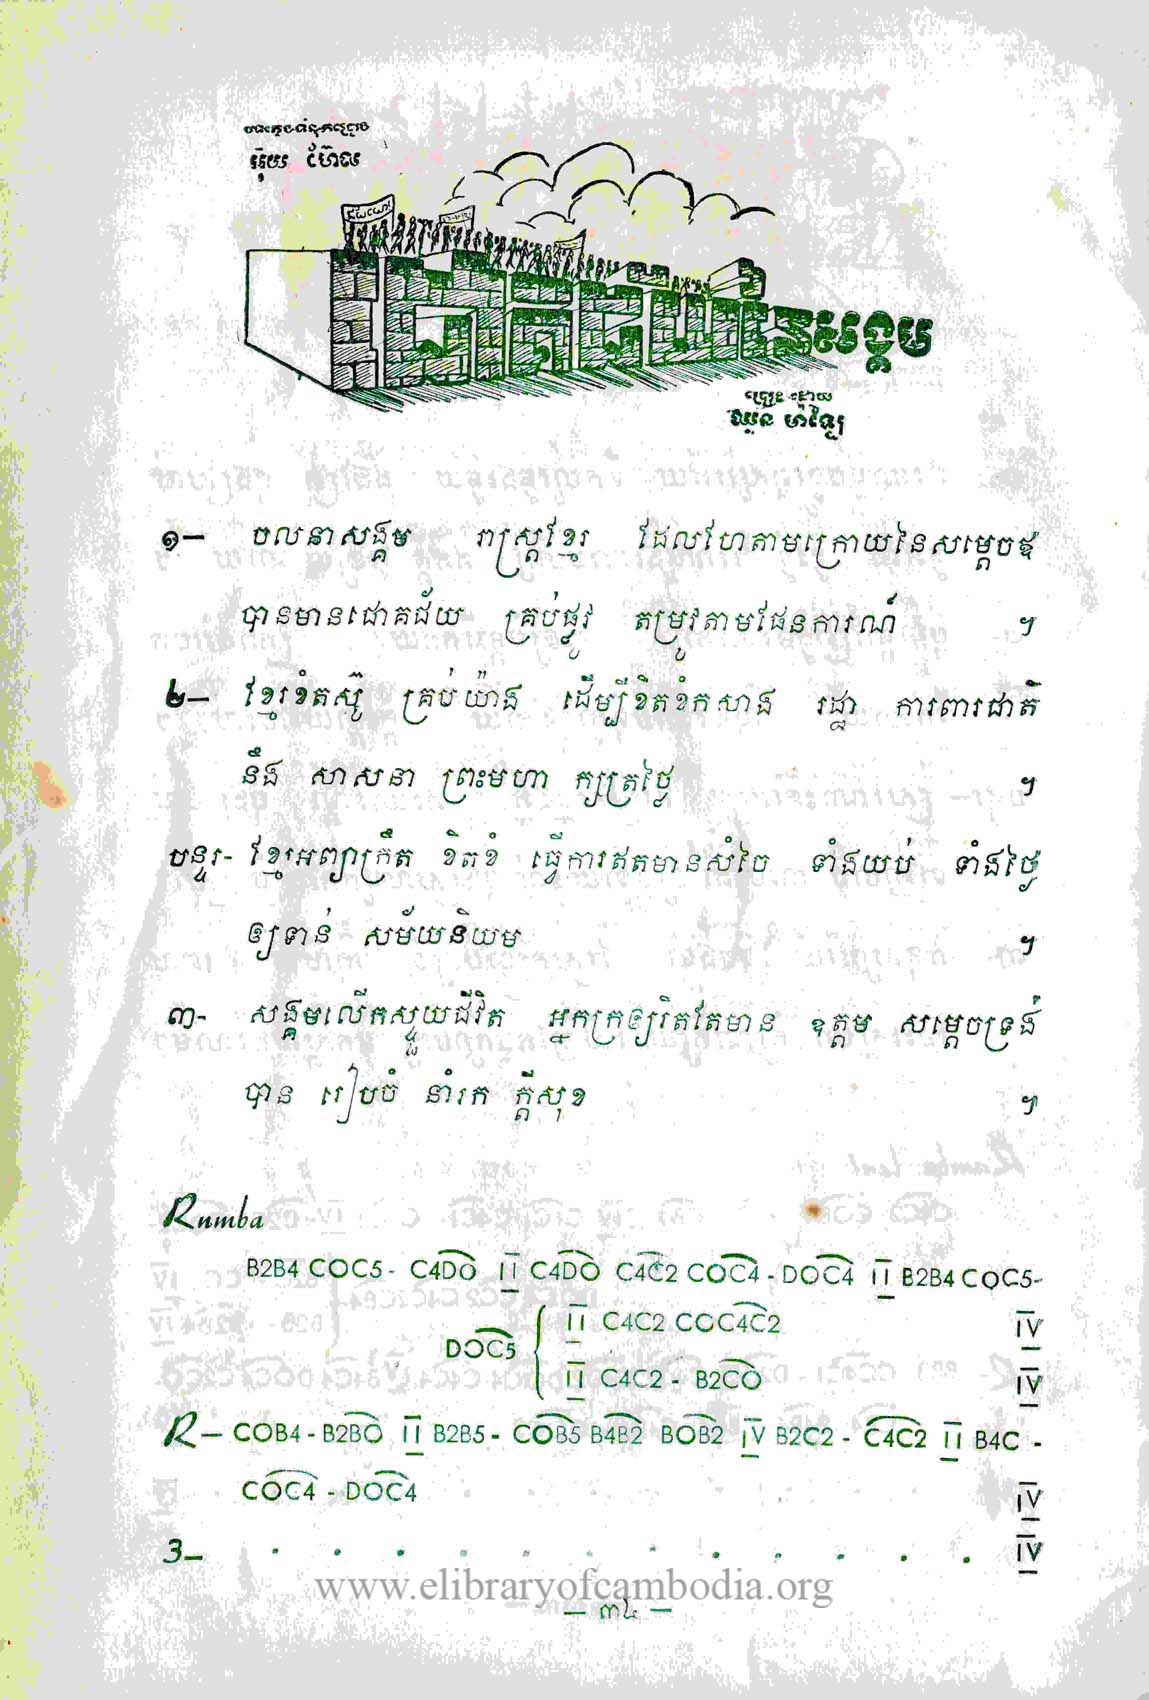 អ៊ុយ ហ៊ែល
ជោគជ័យនៃសង្គម
ច្រៀងដោយ
ឈួន ម៉ាឡៃ
១— ចលនាសង្គម រាស្ត្រខ្មែរ ដែលហែតាមក្រោយនៃសម្តេចឪ
បានមានជោគជ័យ គ្រប់ផ្លូវ តម្រូវតាមផែនការណ៍ ។
២— ខ្មែរខំតស៊ូ គ្រប់យ៉ាង ដើម្បីខិតខំកសាង រដ្ឋា ការពារជាតិ
នឹង សាសនា ព្រះមហា ក្សត្រថ្លៃ ។
បន្ទរ- ខ្មែរអព្យាក្រឹត ខិតខំ ធ្វើការឥតមានសំចៃ ទាំងយប់ ទាំងថ្ងៃ
ឲ្យទាន់ សម័យនិយម ។
៣- សង្គមលើកស្ទួយជីវិត អ្នកក្រឲ្យរិតតែមាន ឧត្តម សម្តេចទ្រង់
បាន រៀបចំ នាំរក ក្តីសុខ ។
Rumba
B2B4 COC5 - C4DO II C4DO C4C2 COC4 - DOC4 II B2B4 COC5-
II C4C2 COC4C2 IV
DOC5
II C4C2 - B2CO IV
R— COB4 - B2BO II B2B5 - COB5 B4B2 BOB2 IV B2C2 - C4C2 II B4C -
COC4 - DOC4 IV
3— . . . . . . . . . . . . IV
www.elibraryofcambodia.org
— ៣៤ —